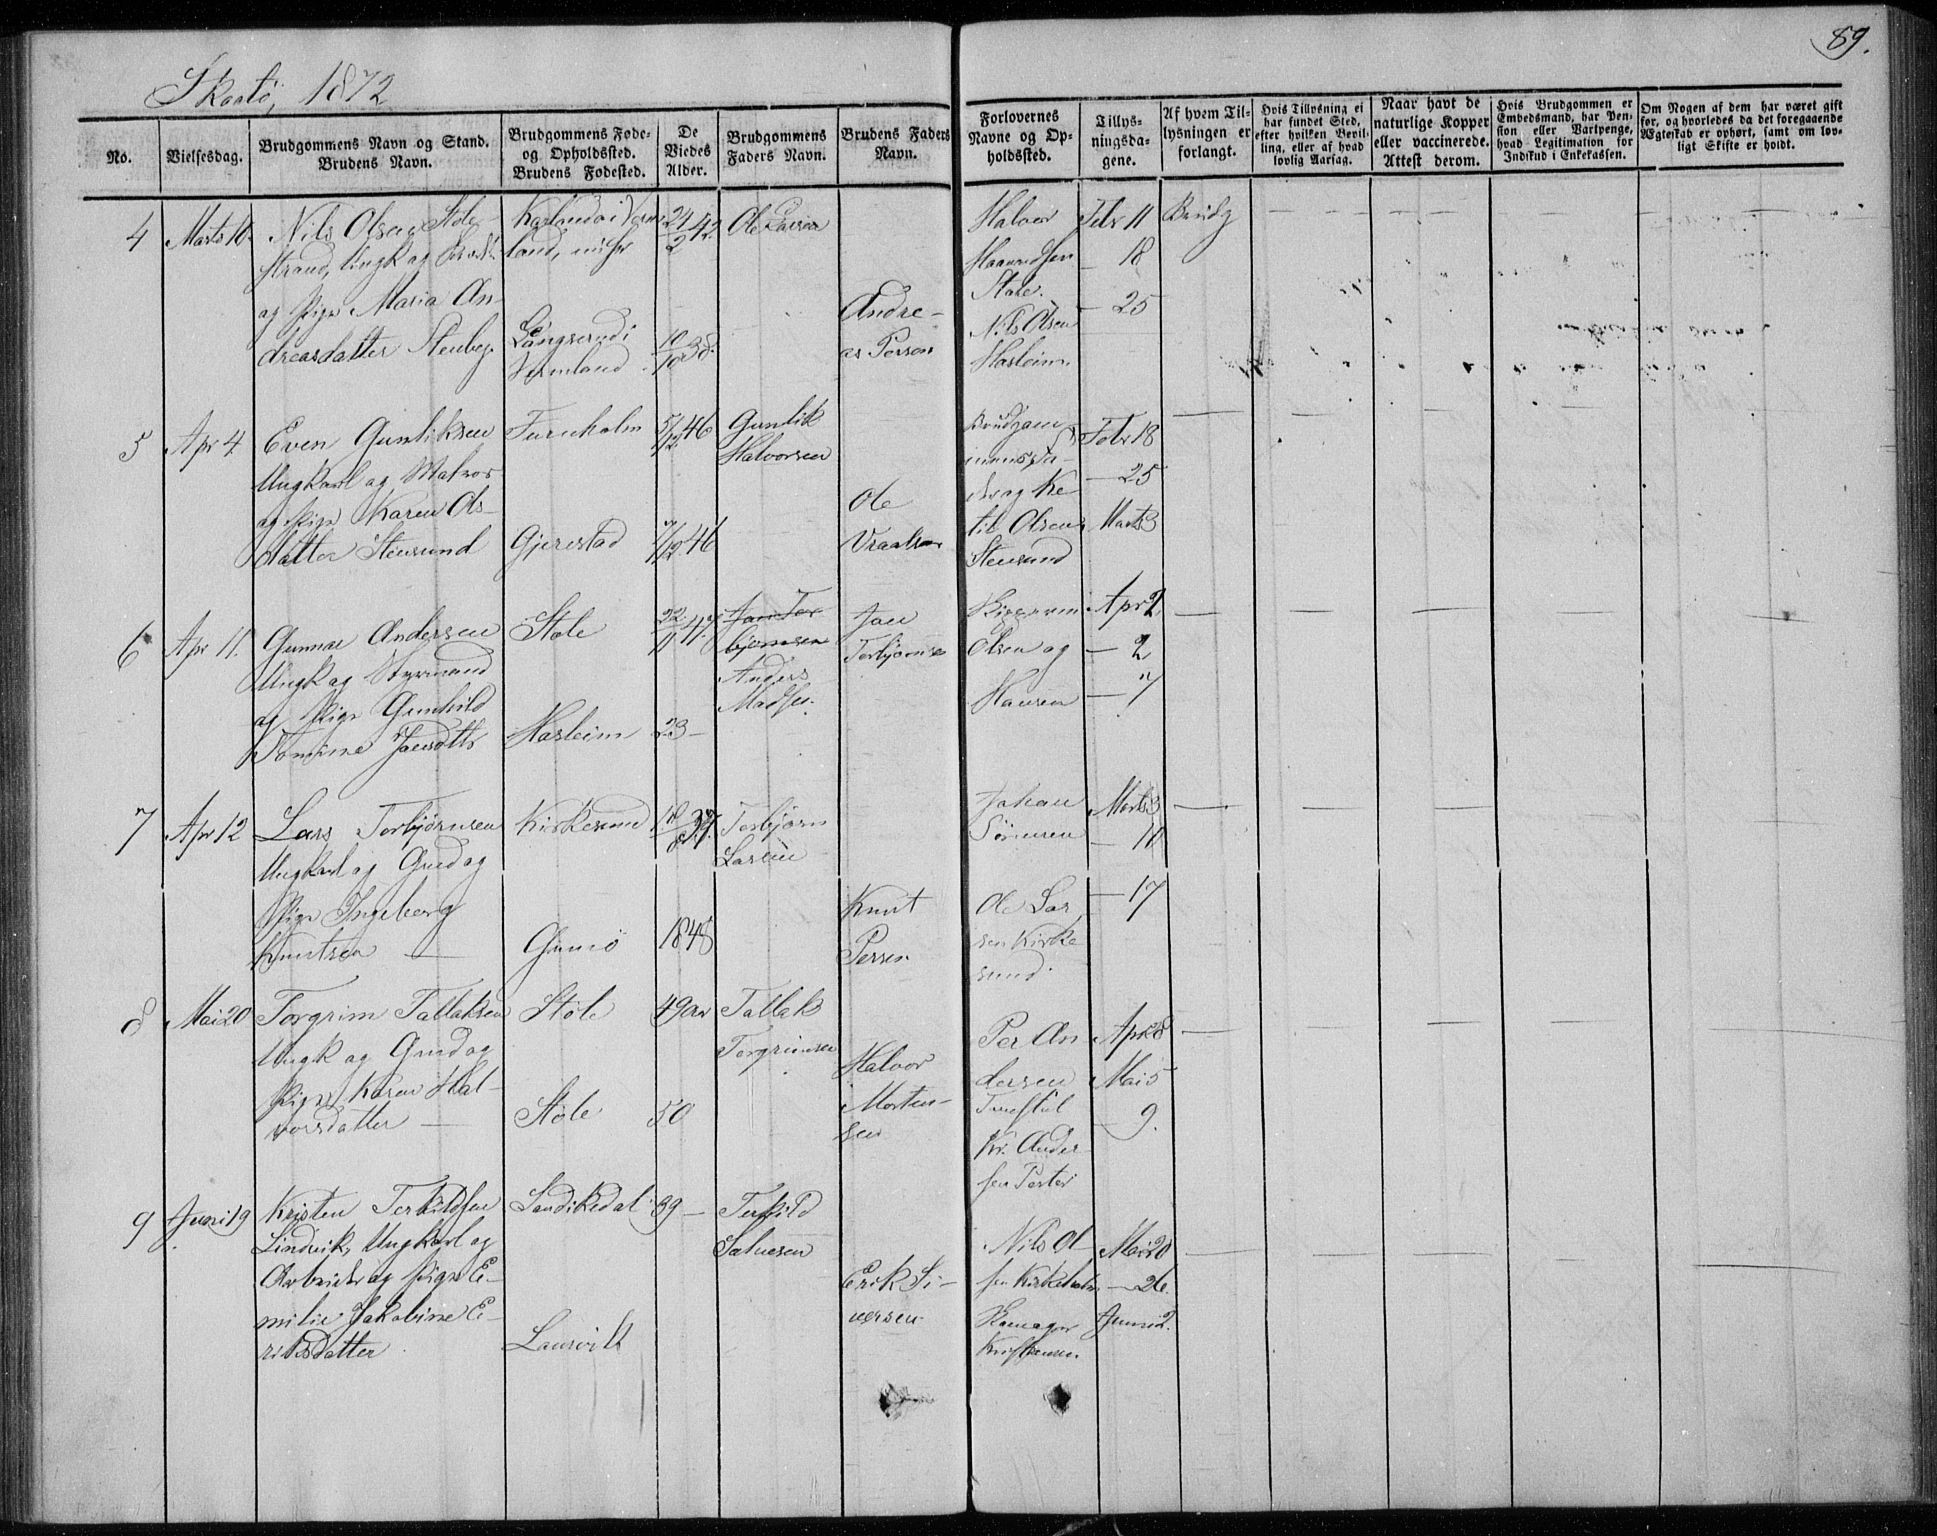 89.
Skaatö, 1872
No.
Vielsesdag.
Brudgommens Navn og Stand.
Brudens Navn.
Brudgommens Føde-
og Opholdssted.
Brudens Fødested.
De
Viedes
Alder.
Brudgommens
Faders Navn.
Brudens Faders
Navn.
Forlovernes
Navne og Op-
holdssted.
Tillys-
ningsda-
gene.
Af hvem Til-
lysningen er
forlangt.
Hvis Tillysning ei
har fundet Sted,
efter hvilken Bevil-
ling, eller af hvad
lovlig Aarsag.
Naar havt de
naturlige Kopper
eller vaccinerede.
Attest derom.
Hvis Brudgommen er
Embedsmand, har Pen-
sion eller Vartpenge,
hvad Legitimation for
Indskud i Enkekassen.
Om Nogen af dem har været gift
før, og hvorledes da det foregaaende
Ægteskab er ophørt, samt om lov-
ligt Skifte er holdt.
4
Marts 10.
Nils Olsen Stole-
strand, Ungk og
og Pige Maria An-
dreasdatter Stenbeg.
land,
Langserud i
Vermland
24/2 42.
10/10 38.
Ole Larsen
Andre-
as Persen
Halvor
Haavodsen
Stole.
Nils Olsen
Hasleim.
Febr 11
— 18
— 25
5
Apr 4.
Even Gunliksen
Ungkarl og Matros
og Pige Karen Ols-
datter Stensund
Furuholm
Gjerestad
5/12 46
7/12 46
Gunlik
Halvorsen
Ole
Vraalsen
Brudgom-
mens Fa-
der og Ke-
til Olsen
Stensund
Febr 18
— 25
Marts 3
6
Apr 11.
Gunnar Andersen
Ungk og Styrmand
og Pige Gunhild
Tomine Jansdttr
Stole
Hasleim
22/11 47.
23 —
Jan Tor-
bjørnsen
Anders
Madsen.
Jan
Torbjørnsen
Olsen og
Hansen
Apr 2
— 2
— 7
7
Apr 12
Lars Torbjørnsen
Ungkarl og Gmd og
Pige Ingeborg
Knutsen —
Kirkesund
Gumö
18/8 37.
1848
Torbjørn
Larsen
Knut
Persen
Johan
Sörensen
Ole Lar-
sen Kirke-
sund.
Marts 3
— 11
— 17
8
Mai 20
Torgrim Tallaksen
Ungk og Gmd og
Pige Karen Hal-
vorsdatter —
Stöle
Stöle
49 Aar
50
Tallak
Torgrimsen
Halvor
Morten-
sen
Per An-
dersen
Kr. Ander-
sen Porter
Apr 28
Mai 5
— 9.
9
Juni 19
Kristen Terkildsen
Lindvik, Ungkarl og
Arbeider og Pige E-
milie Jakobine E-
riksdatter
Sandikedal
Laurvik
39 —
Terkild
Salvesen
Erik Si-
versen
Nils Ol-
sen Kirkeholm
Kristiansen.
Mai 20
— 26.
Juni 2.